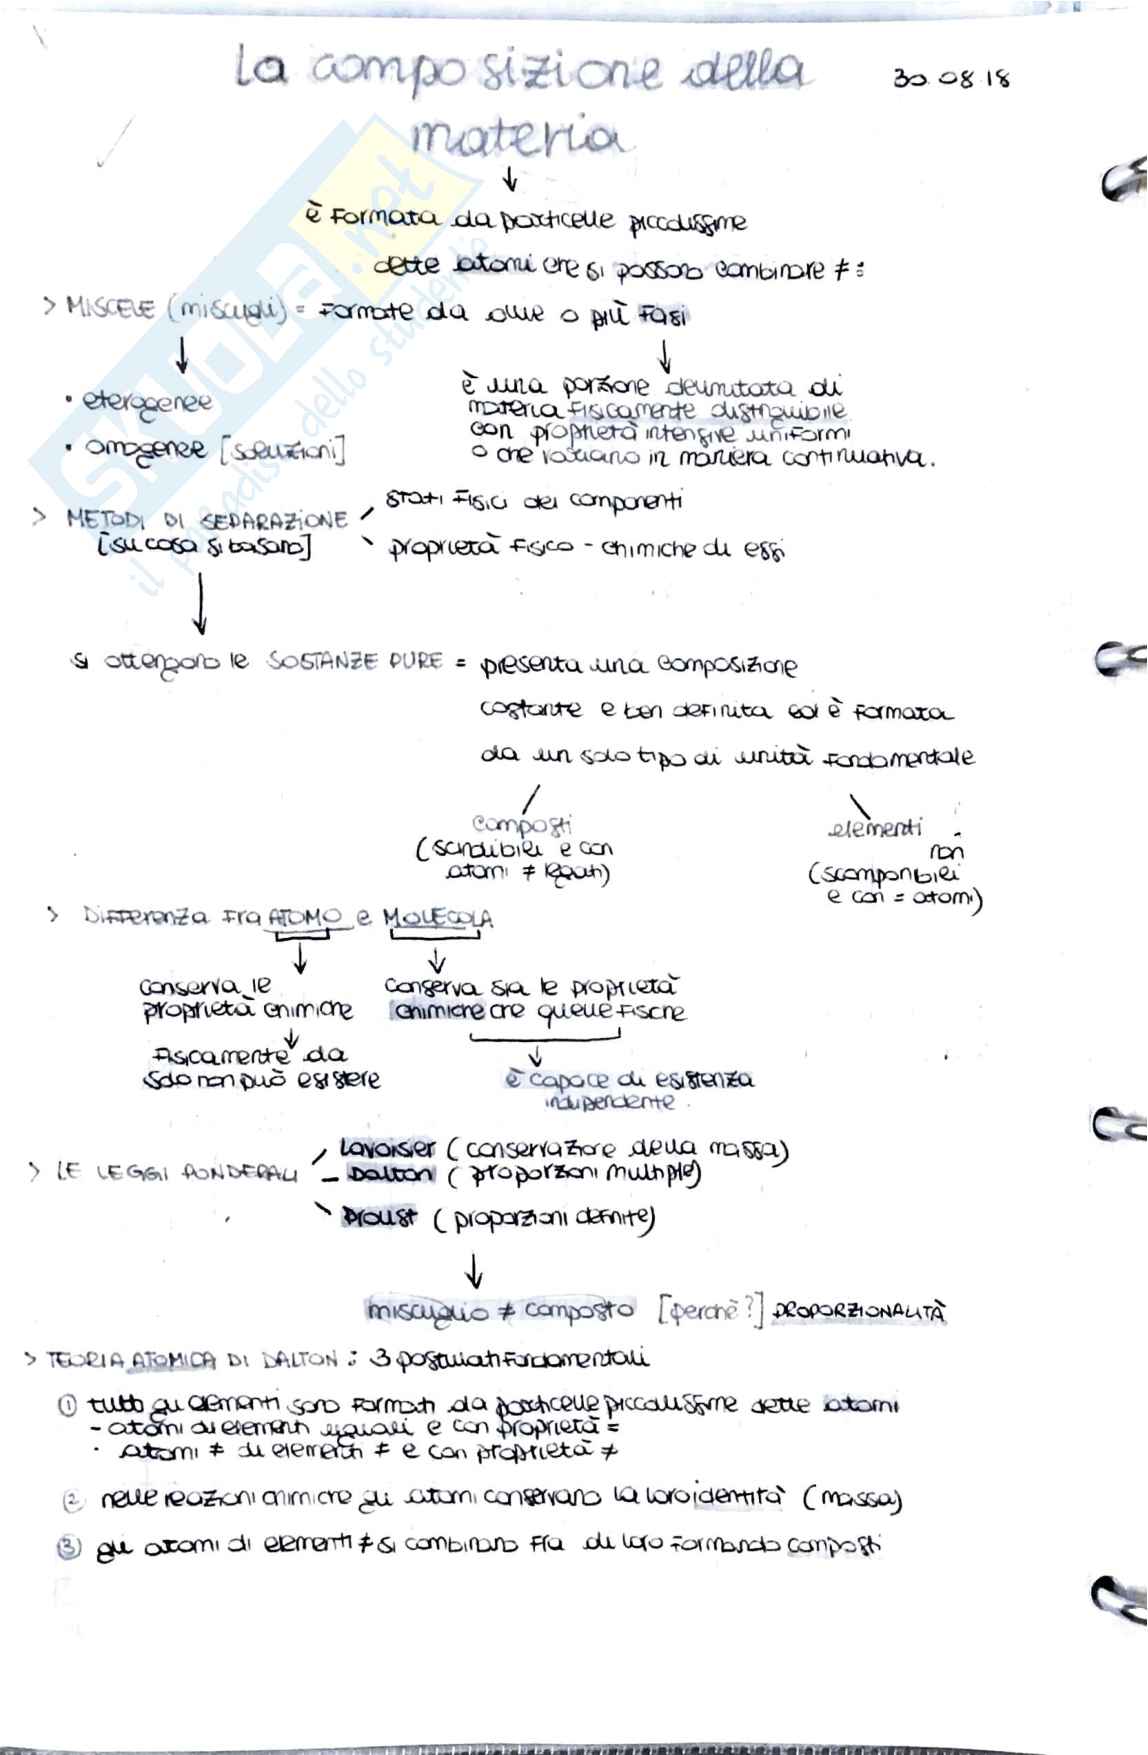 La composizione della
30.08.18
materia
è formata da particelle piccolissime
dette atomi che si possono combinare ≠:
> MISCELE (miscugli) = formate da due o più fasi
• eterogenee
• omogenee [soluzioni]
è una porzione delimitata di
materia fisicamente distinguibile
con proprietà intensive uniformi
o che variano in maniera continuativa.
> METODI DI SEPARAZIONE
[su cosa si basano]
stati fisici dei componenti
proprietà fisico-chimiche di essi
si ottengono le SOSTANZE PURE = presenta una composizione
costante e ben definita ed è formata
da un solo tipo di unità fondamentale
composti
(scindibili e con
atomi ≠ legati)
elementi
non
(scomponibili
e con = atomi)
> Differenza fra ATOMO e MOLECOLA
conserva le
proprietà chimiche
fisicamente da
solo non può esistere
conserva sia le proprietà
chimiche che quelle fisiche
è capace di esistenza
indipendente.
> LE LEGGI PONDERALI
Lavoisier (conservazione della massa)
– Dalton (proporzioni multiple)
Proust (proporzioni definite)
miscuglio ≠ composto [perchè?] PROPORZIONALITÀ
> TEORIA ATOMICA DI DALTON: 3 postulati fondamentali
① tutti gli elementi sono formati da particelle piccolissime dette atomi
- atomi di elementi uguali e con proprietà =
· atomi ≠ di elementi ≠ e con proprietà ≠
② nelle reazioni chimiche gli atomi conservano la loro identità (massa)
③ gli atomi di elementi ≠ si combinano fra di loro formando composti
SKUOLA.net
il paradiso dello studente